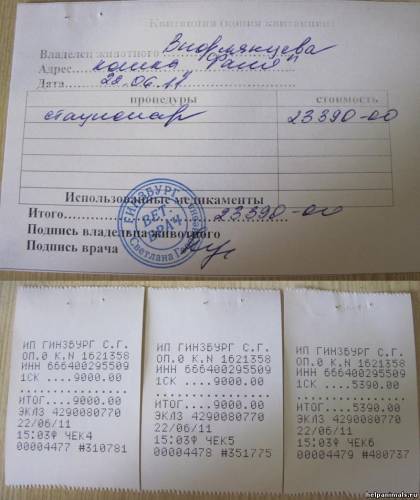 Квитанция (копия квитанции)
Владелец животного Вногрянцева
Адрес кошка "Фаня"
Дата 22.06.11
процедуры стоимость
стационар 23390-00
Использованные медикаменты
Итого 23390-00
Подпись владельца животного
Подпись врача
ГИНЗБУРГ Светлана
ВЕТ-ВРАЧ
ИП ГИНЗБУРГ С.Г.
ОП.0 К.N 1621358
ИНН 666400295509
1СК ....9000.00
ИТОГ....9000.00
ЭКЛЗ 4290080770
22/06/11
15:03Ф ЧЕК4
00004477 #310781
ИП ГИНЗБУРГ С.Г.
ОП.0 К.N 1621358
ИНН 666400295509
1СК ....9000.00
ИТОГ....9000.00
ЭКЛЗ 4290080770
22/06/11
15:03Ф ЧЕК5
00004478 #351775
ИП ГИНЗБУРГ С.Г.
ОП.0 К.N 1621358
ИНН 666400295509
1СК ....5390.00
ИТОГ....5390.00
ЭКЛЗ 4290080770
22/06/11
15:03Ф ЧЕК6
00004479 #480737
helpanimals.ru